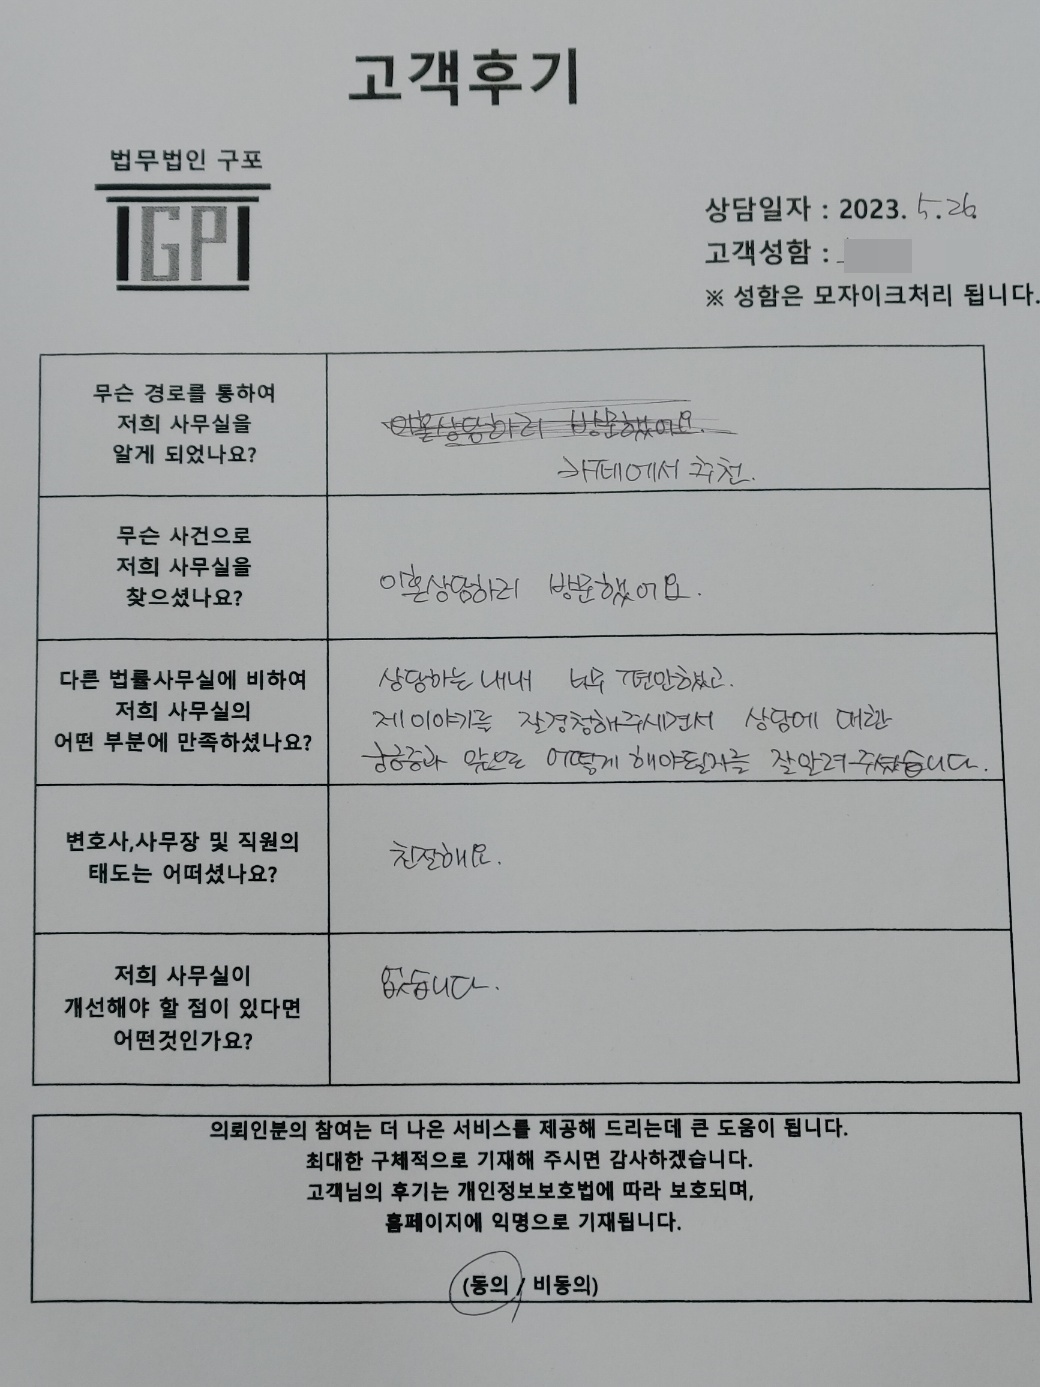 고객후기
법무법인 구포
IGPI
상담일자 : 2023. 5.26.
고객성함 :
※ 성함은 모자이크처리 됩니다.
무슨 경로를 통하여
저희 사무실을
알게 되었나요?
이혼상담하러 방문했어요.
카페에서 추천.
무슨 사건으로
저희 사무실을
찾으셨나요?
이혼상담하러 방문했어요.
다른 법률사무실에 비하여
저희 사무실의
어떤 부분에 만족하셨나요?
상담하는 내내 너무 편안했고.
제 이야기를 잘경청해주시면서 상담에 대한
궁금증과 앞으로 어떻게 해야될지를 잘알려주셨습니다.
변호사,사무장 및 직원의
태도는 어떠셨나요?
친절해요.
저희 사무실이
개선해야 할 점이 있다면
어떤것인가요?
없습니다.
의뢰인분의 참여는 더 나은 서비스를 제공해 드리는데 큰 도움이 됩니다.
최대한 구체적으로 기재해 주시면 감사하겠습니다.
고객님의 후기는 개인정보보호법에 따라 보호되며,
홈페이지에 익명으로 기재됩니다.
(동의 / 비동의)